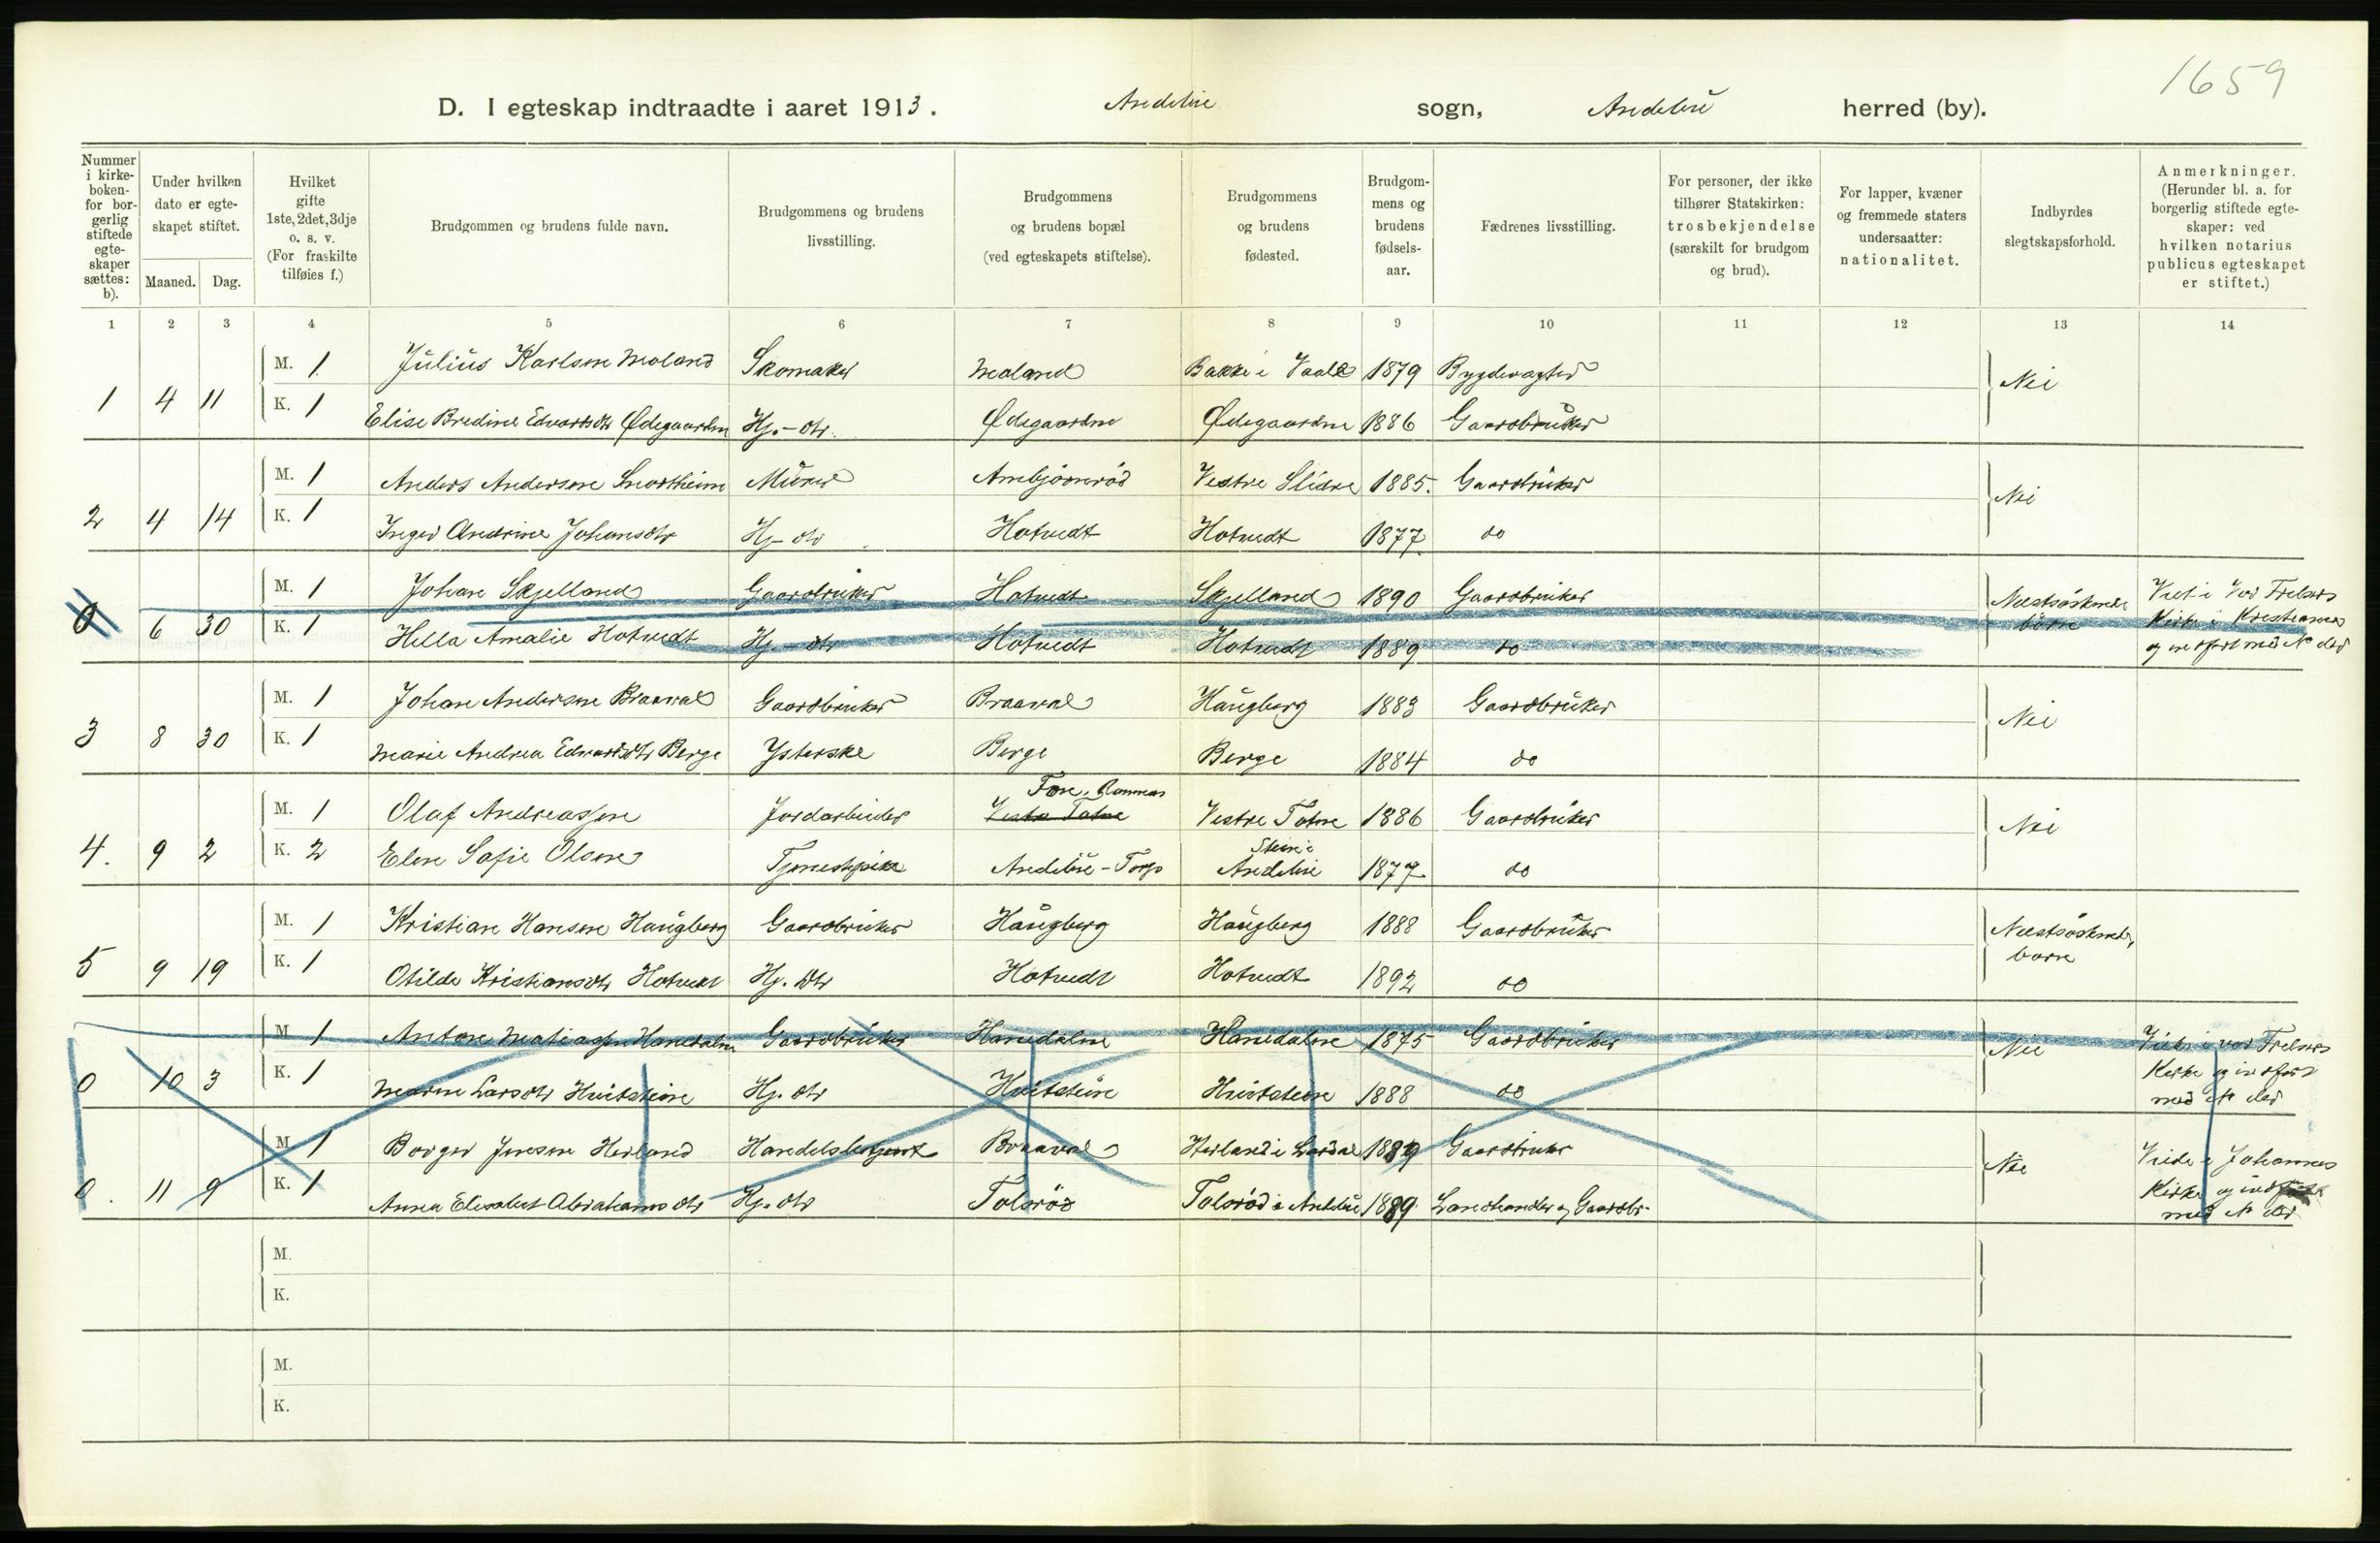 1659
D. I egteskap indtraadte i aaret 1913. Andebu sogn, Andebu herred (by).
Nummer i kirkeboken- for borgerlig stiftede egteskaper sættes: b).
Under hvilken dato er egteskapet stiftet. Maaned. Dag.
Hvilket gifte 1ste, 2det, 3dje o. s. v. (For fraskilte tilføies f.)
Brudgommen og brudens fulde navn.
Brudgommens og brudens livsstilling.
Brudgommens og brudens bopæl (ved egteskapets stiftelse).
Brudgommens og brudens fødested.
Brudgommens og brudens fødselsaar.
Fædrenes livsstilling.
For personer, der ikke tilhører Statskirken: trosbekjendelse (særskilt for brudgom og brud).
For lapper, kvæner og fremmede staters undersaatter: nationalitet.
Indbyrdes slegtskapsforhold.
Anmerkninger. (Herunder bl. a. for borgerlig stiftede egteskaper: ved hvilken notarius publicus egteskapet er stiftet.)
1 2 3 4 5 6 7 8 9 10 11 12 13 14
M. 1 Julius Karlsen Moland Skomaker Moland Bakke i Vaale 1879 Bygdevagter
1 4 11 Nei
K. 1 Elise Bredine Edvardsdtr Ødegaarden Hj.-dtr. Ødegaarden Ødegaarden 1886 Gaardbruker
M. 1 Anders Andersen Snortheim Murer Arnbjörnröd Vestre Slidre 1885. Gaardbruker
2 4 14 Nei
K. 1 Inger Andrine Johansdtr Hj-dtr Hotvedt Hotvedt 1877. do
M. 1 Johan Skjelland Gaardbruker Hotvedt Skjelland 1890 Gaardbruker Næstsöskende börn Viet i Vor Frelsers Kirke i Kristiania og indfört med No der
0 6 30
K. 1 Hella Amalie Hotvedt Hj.-dtr Hotvedt Hotvedt 1889 do
M. 1 Johan Andersen Braaval Gaardbruker Braaval Haugberg 1883 Gaardbruker
3 8 30 Nei
K. 1 Marie Andrea Edvardsdtr Berge Ysterske Berge Berge 1884 do
M. 1 Olaf Andreassen Jordarbeider Vestre Toten Fon, Ramnes Vestre Toten 1886 Gaardbruker
4. 9 2 Nei
K. 2 Elen Sofie Olsen Tjenestepike Andebu-Torp Stein i Andebu 1877 do
M. 1 Kristian Hansen Haugberg Gaardbruker Haugberg Haugberg 1888 Gaardbruker
5 9 19 Næstsöskende, börn
K. 1 Otilde Kristiansdtr Hotvedt Hj. Dtr Hotvedt Hotvedt 1892 do
M 1 Anton Matiassen Hanedalen Gaardbruker Hanedalen Hanedalen 1875 Gaardbruker
0 10 3 Nei Viet i vor Frelsers Kirke og indfört med No der
K. 1 Maren Larsdtr Hvitstein Hj. dtr Hvitstein Hvitstein 1888 do
M 1 Borger Jensen Herland Handelsbetjent Braaval Herland i Lardal 1889 Gaardbruker
0. 11 9 Nei Viede i Johannes Kirke og indfört med No der
K. 1 Anna Elisabet Abrahamsdtr Hj. dtr Tolsröd Tolsröd i Andebu 1889 Landhandler og Gaardbr.
M.
K.
M.
K.